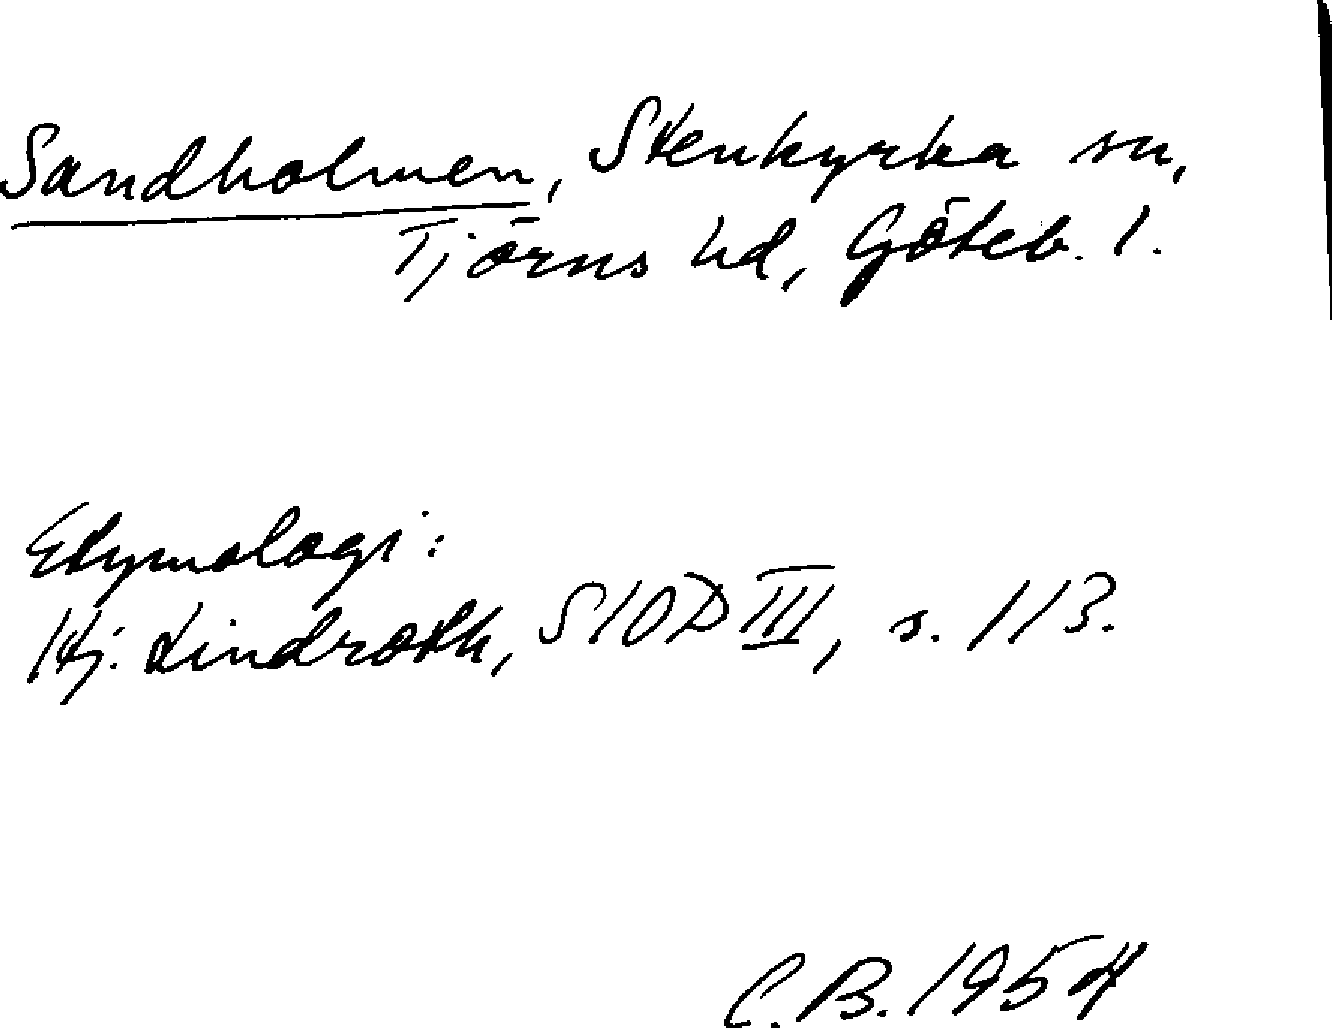 Sandholmen, Stenkyrka sn,
Tjörns hd, Göteb. l.
Etymologi:
Hj. Lindroth, SIOD III, s. 113.
C.B. 1954